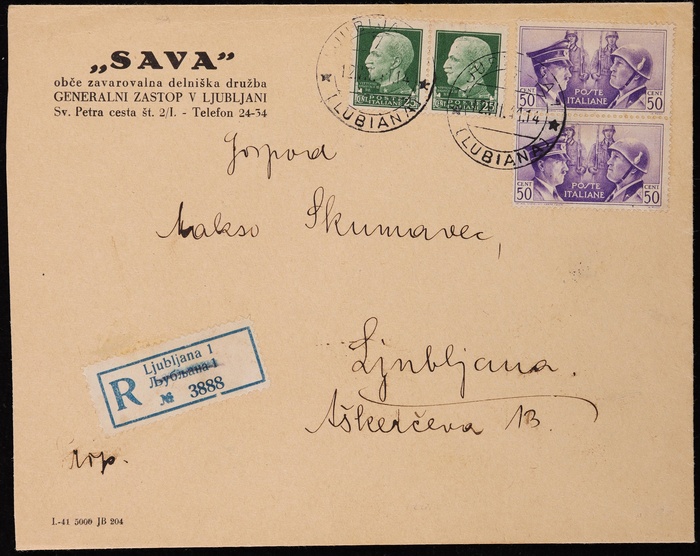 „SAVA”
obče zavarovalna delniška družba
GENERALNI ZASTOP V LJUBLJANI
Sv. Petra cesta št. 2/I. - Telefon 24-34
25
CENT 50
POSTE ITALIANE
CENT 50
CENT 50
POSTE ITALIANE
CENT 50
(LUBIANA)
(LUBIANA)
Gospod
Makso Skumavec,
Ljubljana.
Aškerčeva 13.
R
Ljubljana 1
Љубљана 1
№ 3888
L-41 5000 JB 204